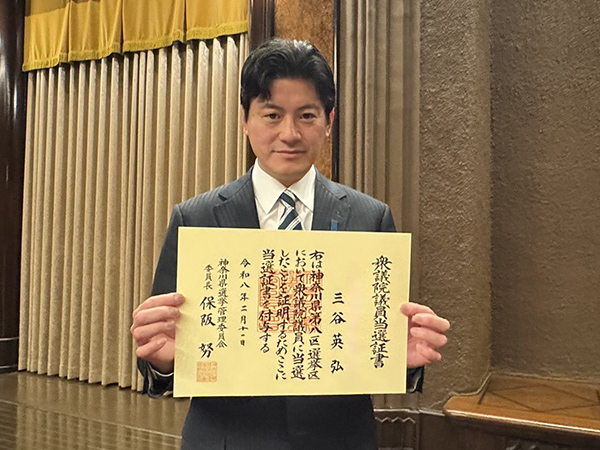 衆議院議員当選証書
三谷英弘
右は神奈川県第八区選挙区
において衆議院議員に当選
したことを証明するためここに
当選証書を付与する
令和八年二月十一日
神奈川県選挙管理委員会
委員長 保阪努